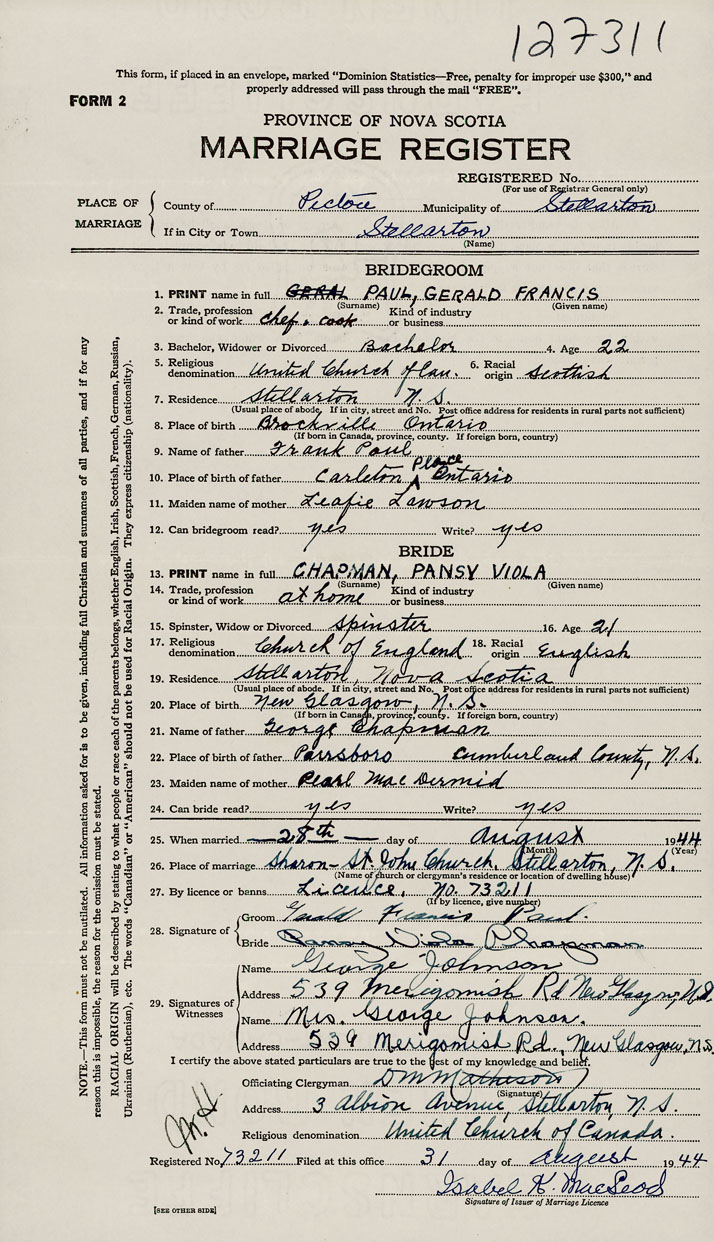 127311
This form, if placed in an envelope, marked "Dominion Statistics—Free, penalty for improper use $300," and
properly addressed will pass through the mail "FREE".
FORM 2
PROVINCE OF NOVA SCOTIA
MARRIAGE REGISTER
REGISTERED No.
(For use of Registrar General only)
PLACE OF MARRIAGE
County of Pictou Municipality of Stellarton
If in City or Town Stellarton
(Name)
BRIDEGROOM
1. PRINT name in full GERAL PAUL, GERALD FRANCIS
(Surname) (Given name)
2. Trade, profession or kind of work chef. cook Kind of industry or business
3. Bachelor, Widower or Divorced Bachelor 4. Age 22
5. Religious denomination United Church of Can. 6. Racial origin Scottish
7. Residence Stellarton N.S.
(Usual place of abode. If in city, street and No. Post office address for residents in rural parts not sufficient)
8. Place of birth Brockville Ontario
(If born in Canada, province, county. If foreign born, country)
9. Name of father Frank Paul
10. Place of birth of father Carleton Place Ontario
11. Maiden name of mother Leafie Lawson
12. Can bridegroom read? yes Write? yes
BRIDE
13. PRINT name in full CHAPMAN, PANSY VIOLA
(Surname) (Given name)
14. Trade, profession or kind of work at home Kind of industry or business
15. Spinster, Widow or Divorced spinster 16. Age 21
17. Religious denomination Church of England 18. Racial origin English
19. Residence Stellarton, Nova Scotia
(Usual place of abode. If in city, street and No. Post office address for residents in rural parts not sufficient)
20. Place of birth New Glasgow, N.S.
(If born in Canada, province, county. If foreign born, country)
21. Name of father George Chapman
22. Place of birth of father Parrsboro Cumberland County, N.S.
23. Maiden name of mother Pearl MacDermid
24. Can bride read? yes Write? yes
25. When married 28th day of August 1944
(Month) (Year)
26. Place of marriage Sharon-St. John Church, Stellarton, N.S.
(Name of church or clergyman's residence or location of dwelling house)
27. By licence or banns Licence, No. 73211
(If by licence, give number)
28. Signature of
Groom Gerald Francis Paul.
Bride Pansy Viola Chapman
29. Signatures of Witnesses
Name George Johnson
Address 539 Merigomish Rd New Glasgow, N.S.
Name Mrs. George Johnson.
Address 539 Merigomish Rd., New Glasgow, N.S.
I certify the above stated particulars are true to the best of my knowledge and belief.
Officiating Clergyman D M Matheson
(Signature)
Address 3 Albion Avenue, Stellarton, N.S.
Religious denomination United Church of Canada.
Registered No. 73211 Filed at this office 31 day of August 1944
Isabel K. MacLeod
Signature of Issuer of Marriage Licence
[SEE OTHER SIDE]
NOTE.—This form must not be mutilated. All information asked for is to be given, including full Christian and surnames of all parties, and if for any
reason this is impossible, the reason for the omission must be stated.
RACIAL ORIGIN will be described by stating to what people or race each of the parents belongs, whether English, Irish, Scottish, French, German, Russian,
Ukrainian (Ruthenian), etc. The words "Canadian" or "American" should not be used for Racial Origin. They express citizenship (nationality).